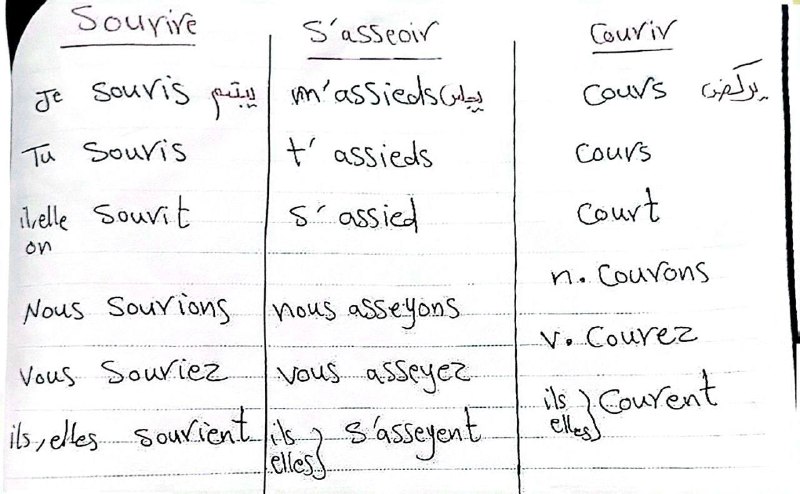 Sourire
Je souris يبتسم
Tu souris
il, elle sourit
on
Nous sourions
Vous souriez
ils, elles sourient
S'asseoir
m'assieds يجلس
t'assieds
s'assied
nous asseyons
vous asseyez
ils } s'asseyent
elles
Courir
cours يركض
cours
court
n. courons
v. courez
ils } courent
elles